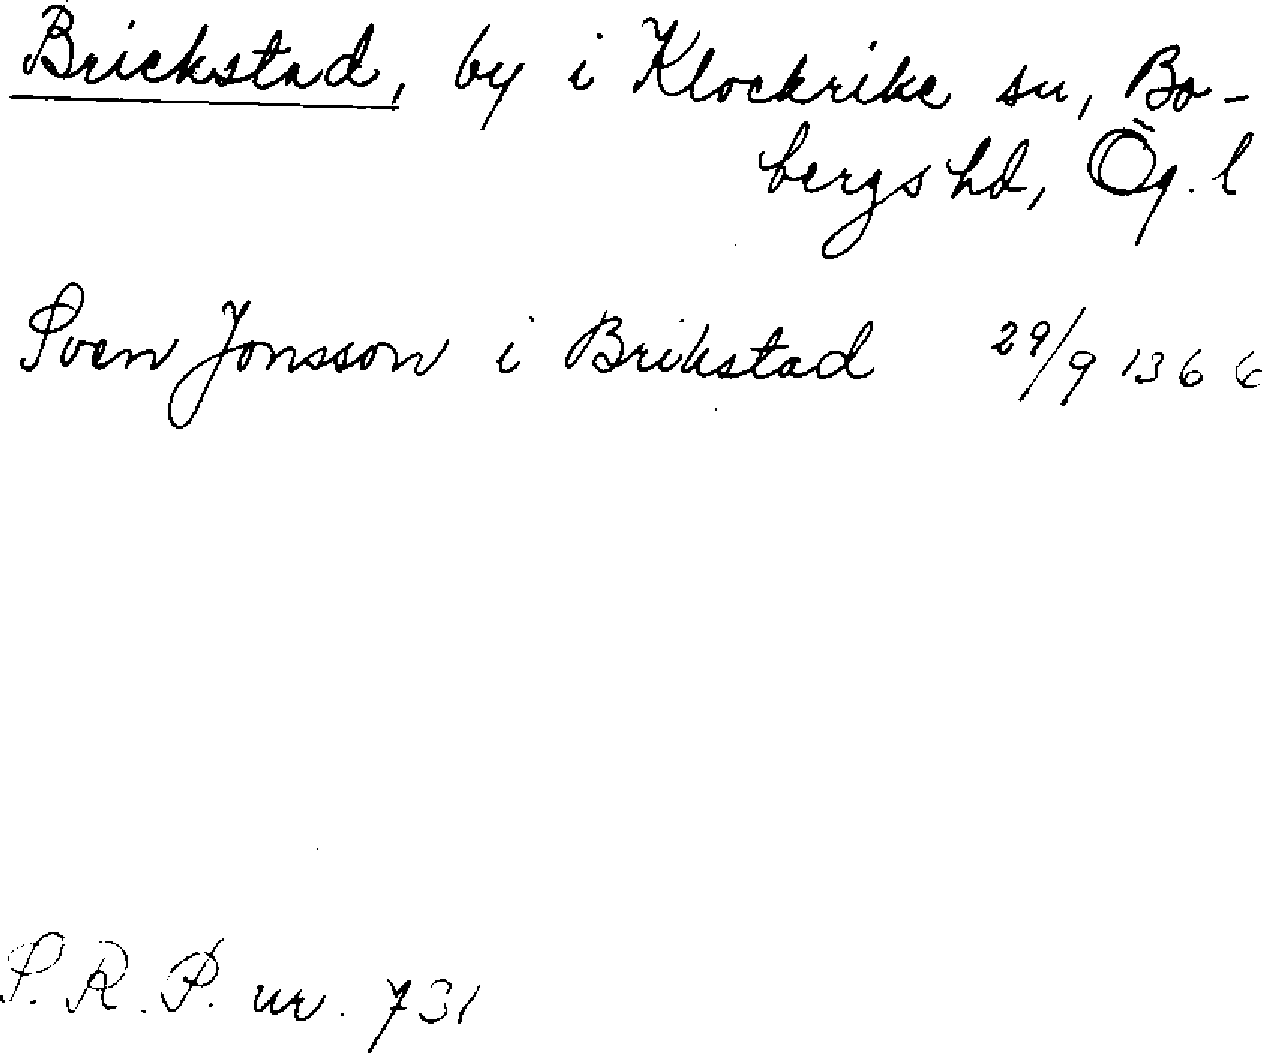 Brickstad, by i Klockrike sn, Bo-
bergs hd, Ög. l
Sven Jonsson i Brikstad 29/9 1366
S. R. P. nr. 731